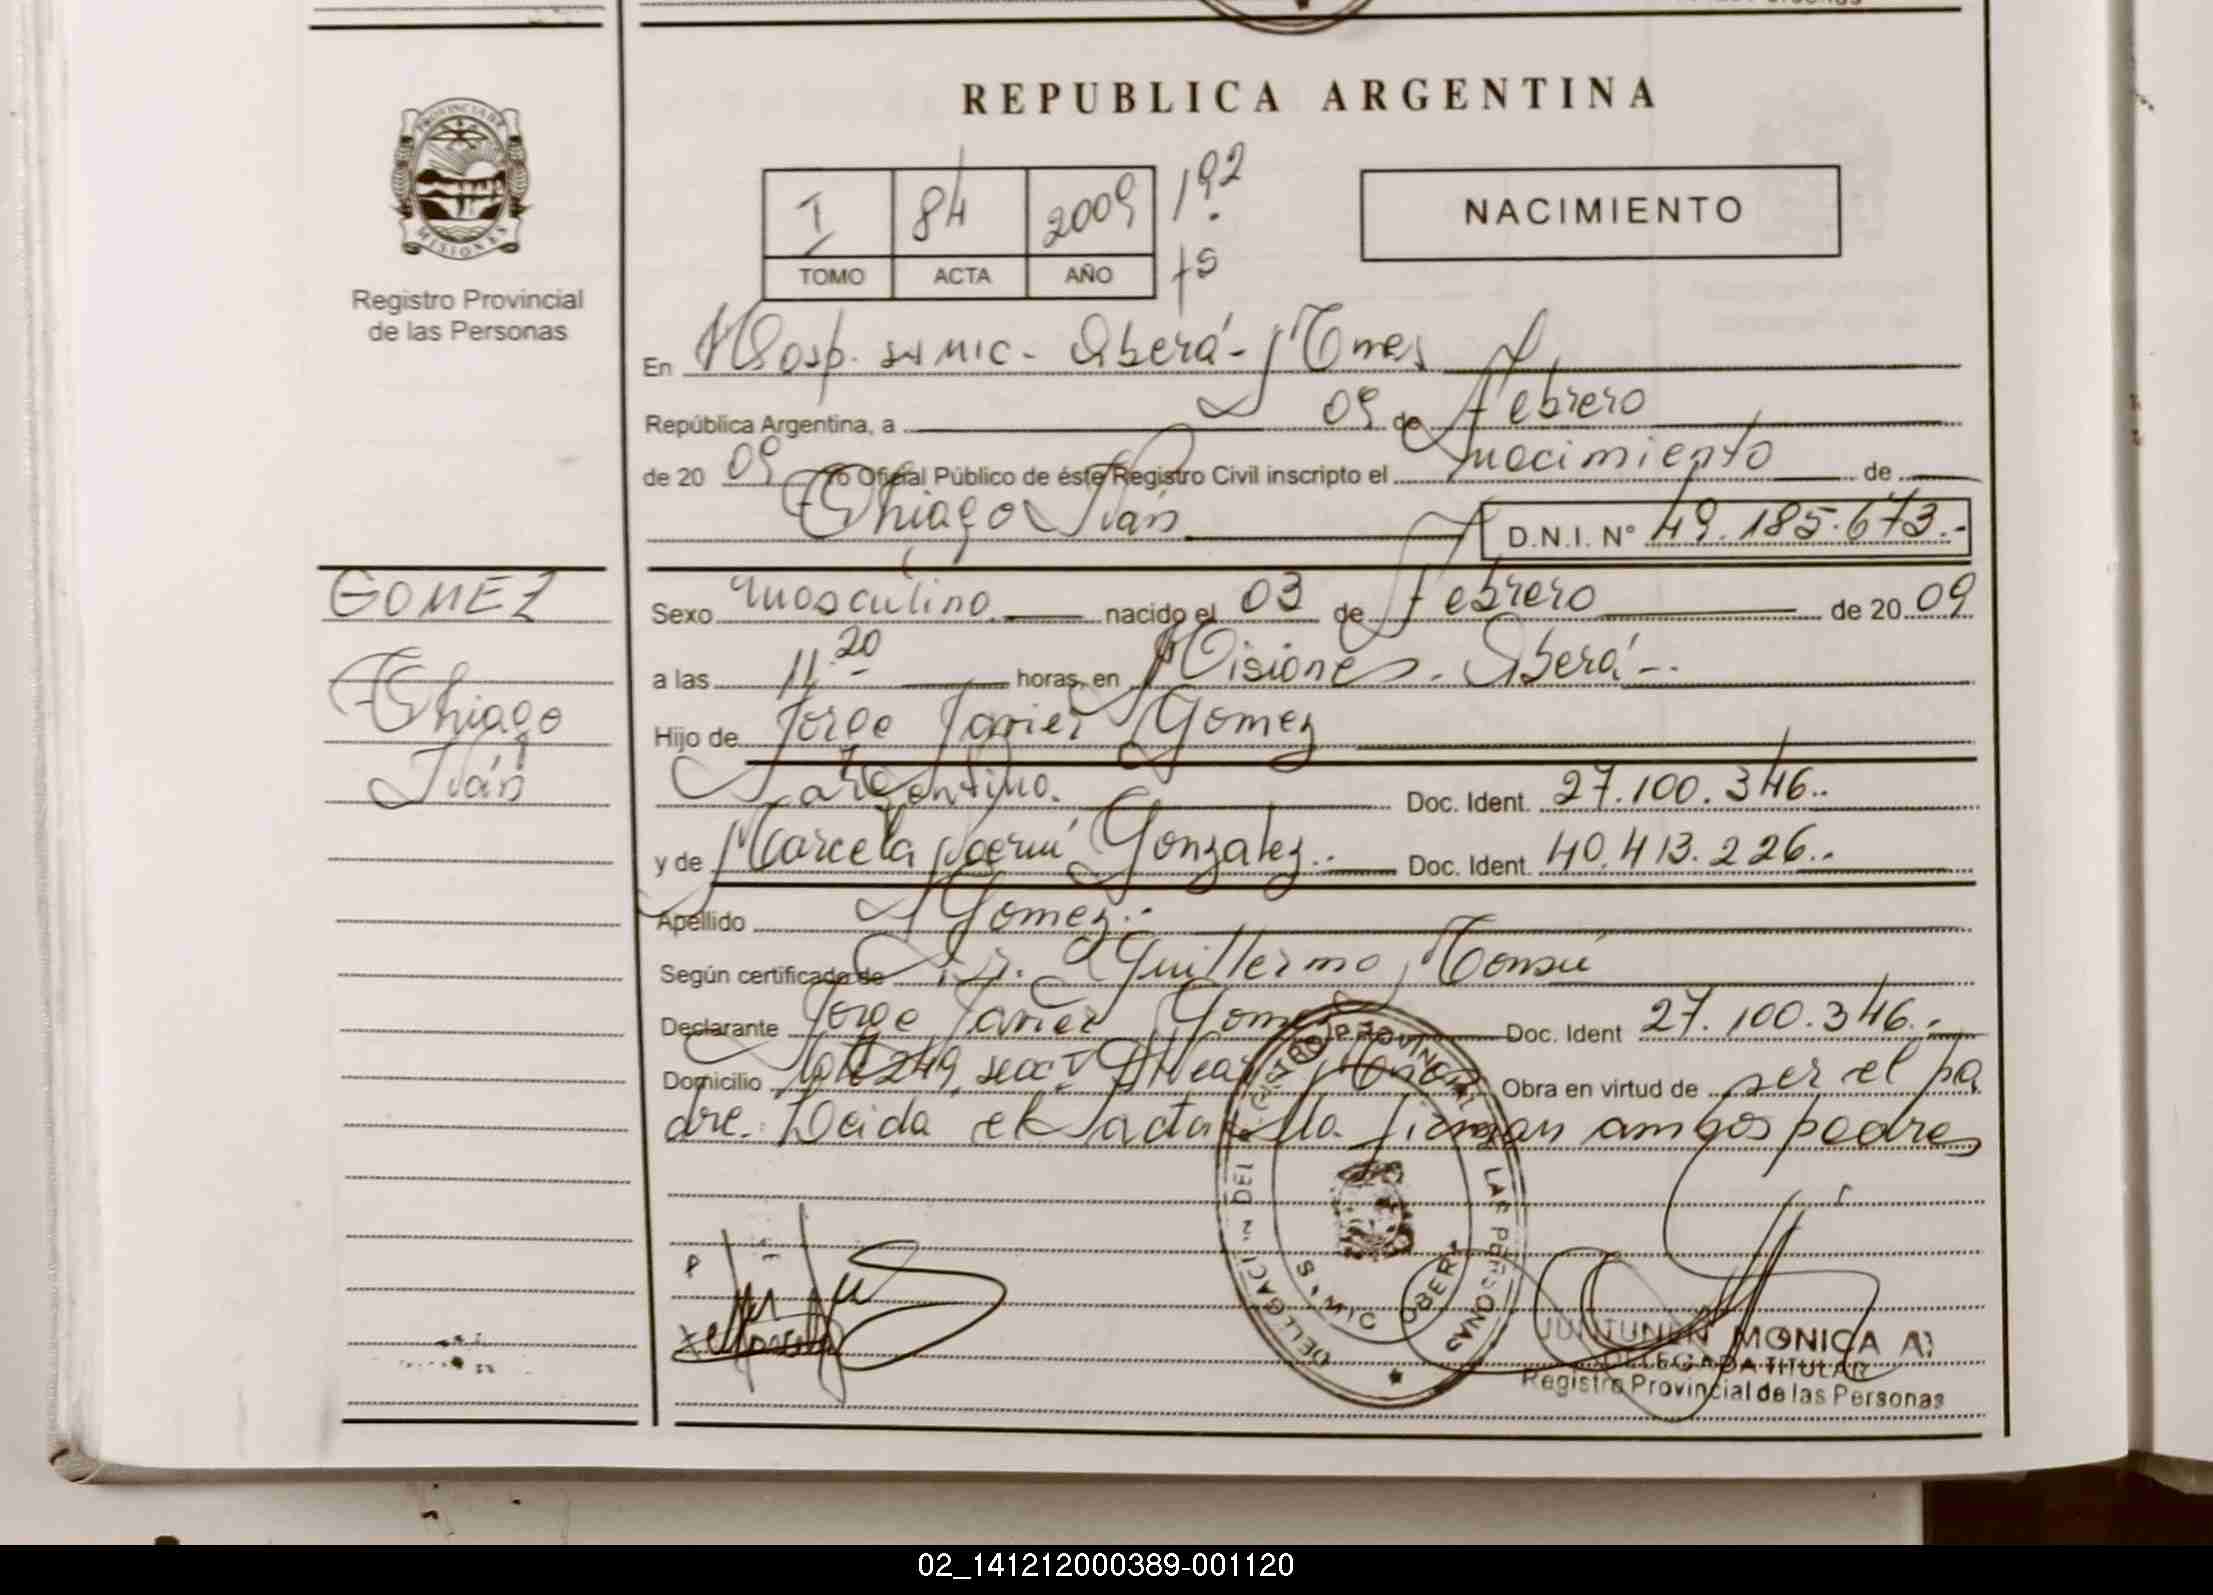 REPUBLICA ARGENTINA
PROVINCIA DE
MISIONES
Registro Provincial
de las Personas
I 84 2009 192
TOMO ACTA AÑO fs
NACIMIENTO
En Hosp. SAMIC - Oberá - Mnes
República Argentina, a 09 de Febrero
de 20 09 Yo Oficial Público de éste Registro Civil inscripto el nacimiento de
Thiago Iván D.N.I. N° 49.185.673.-
GOMEZ
Thiago
Iván
Sexo masculino nacido el 03 de Febrero de 20 09
a las 11.20 horas, en Misiones - Oberá -
Hijo de Jorge Javier Gomez
argentino. Doc. Ident. 27.100.346..
y de Marcela Gonzalez.. Doc. Ident. 40.413.226..
Apellido Gomez.-
Según certificado de Dr. Guillermo
Declarante Jorge Javier Gomez Doc. Ident 27.100.346.-
Domicilio 249, secc. Obra en virtud de ser el pa
dre. Leida el acta la firman ambos padres
DELEGACION DEL REGISTRO PROVINCIAL DE LAS PERSONAS
OBERA
MONICA A.
DELEGADA TITULAR
Registro Provincial de las Personas
02_141212000389-001120